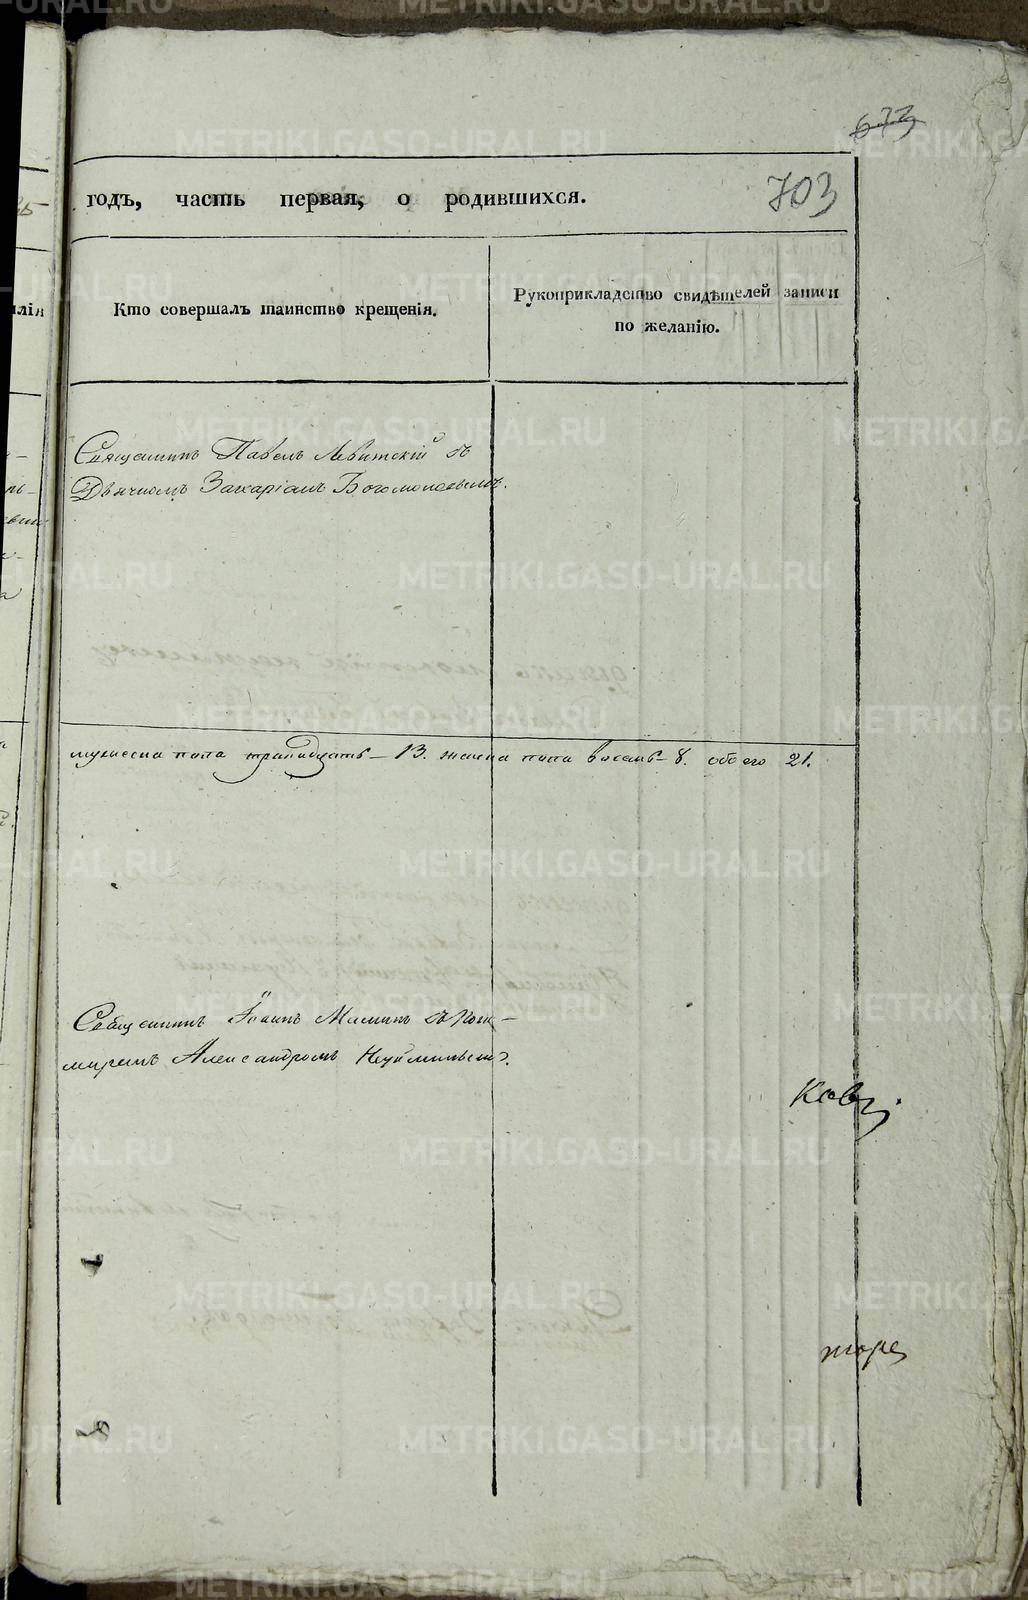 673
годъ, часть первая, о родившихся.
703
Кто совершалъ таинство крещенія.
Рукоприкладство свидѣтелей записи
по желанію.
Священникъ Павелъ Левитскій съ
Дьячкомъ Захаріемъ Богомоловымъ.
мужеска пола тринадцать – 13. женска пола восемь – 8. обоего 21.
Священникъ Іоаннъ Маминъ съ Пономаремъ Александромъ Неуйминымъ.
METRIKI.GASO-URAL.RU